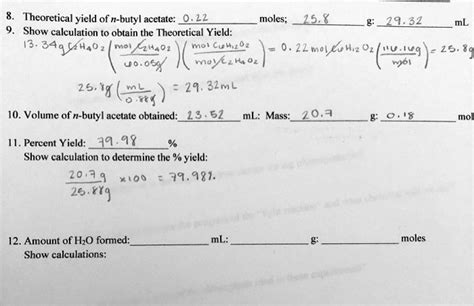 8. Theoretical yield of n-butyl acetate: 0.22 moles; 25.8 g: 29.32 mL
9. Show calculation to obtain the Theoretical Yield:
13.34g C2H4O2 (mol C2H4O2 / 60.05g) (mol C6H12O2 / mol C2H4O2) = 0.22 mol C6H12O2 (116.16g / mol) = 25.8g
25.8g (mL / 0.88g) = 29.32mL
10. Volume of n-butyl acetate obtained: 23.52 mL: Mass: 20.7 g: 0.18 mol
11. Percent Yield: 79.98 %
Show calculation to determine the % yield:
20.7g / 25.88g x100 = 79.98%
12. Amount of H2O formed: mL: g: moles
Show calculations: